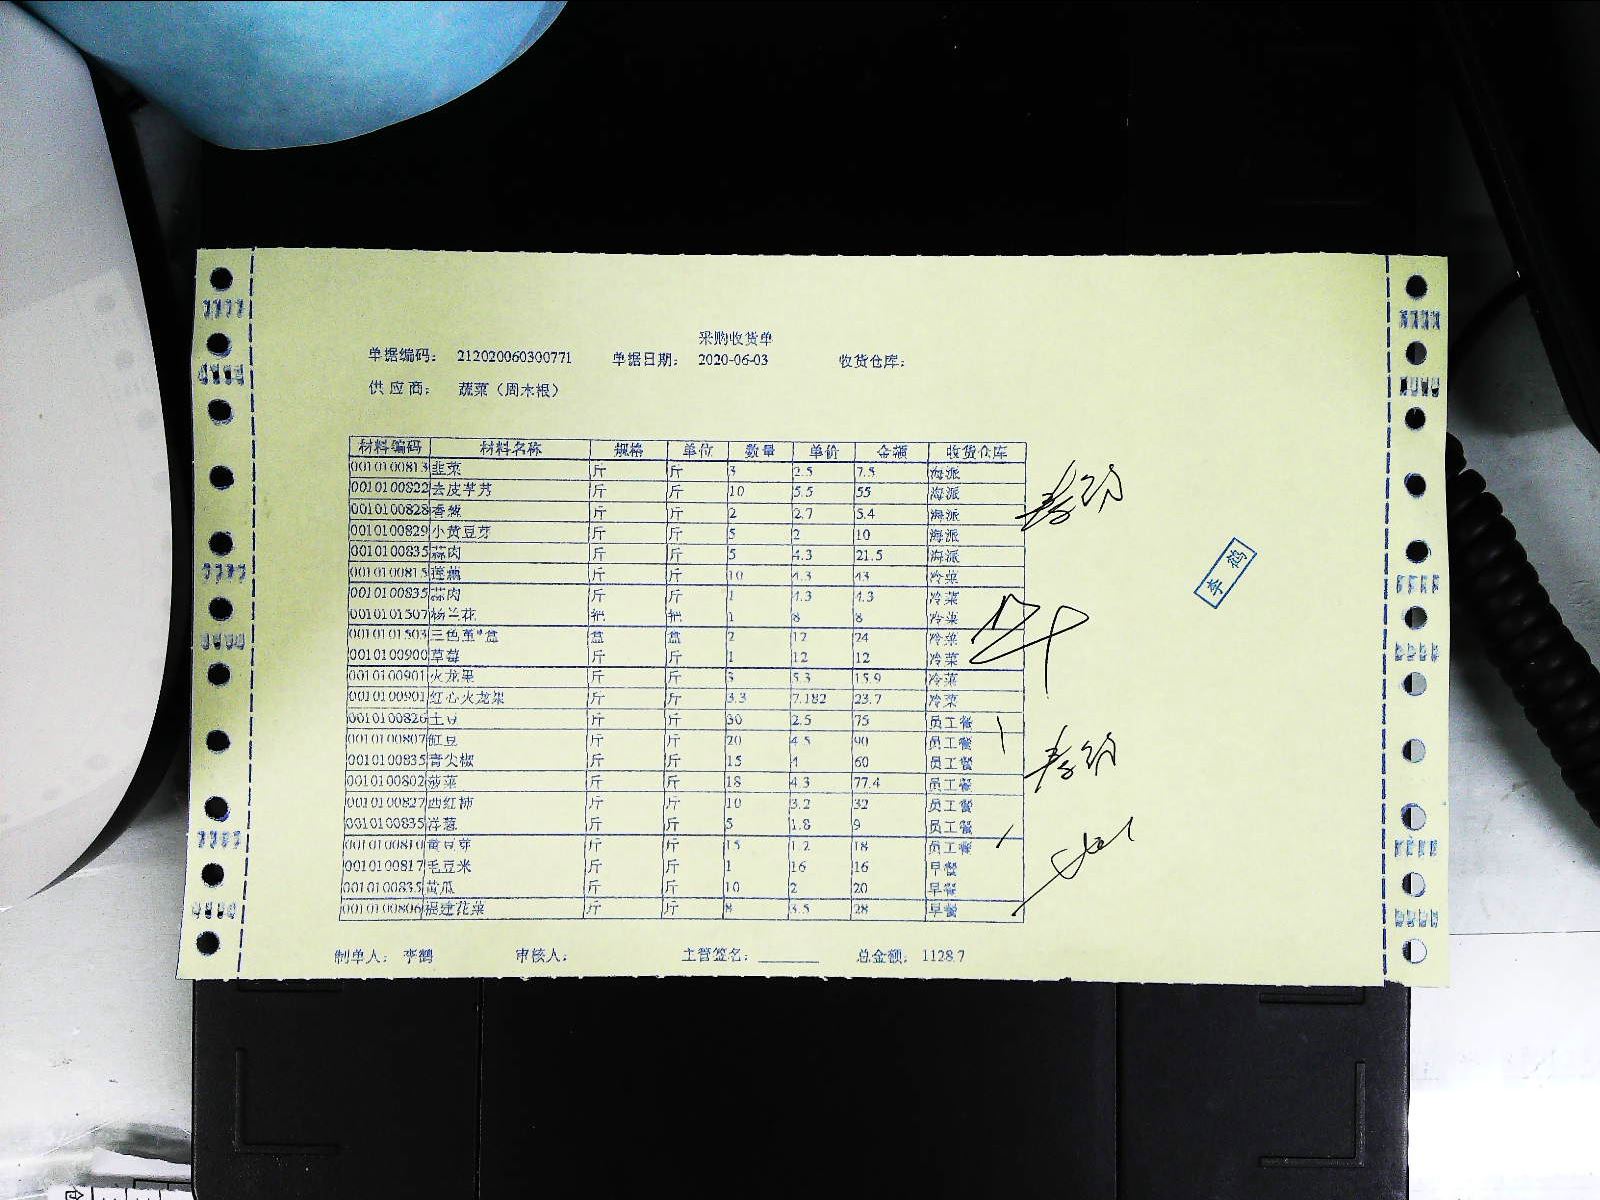 采购收货单
单据编码: 212020060300771 单据日期: 2020-06-03 收货仓库:
供应商: 蔬菜（周木根）
材料编码 材料名称 规格 单位 数量 单价 金额 收货仓库
0010100813 韭菜 斤 斤 3 2.5 7.5 海派
0010100822 去皮芋艿 斤 斤 10 5.5 55 海派
0010100828 香葱 斤 斤 2 2.7 5.4 海派
0010100829 小黄豆芽 斤 斤 5 2 10 海派
0010100835 蒜肉 斤 斤 5 4.3 21.5 海派
0010100815 莲藕 斤 斤 10 4.3 43 冷菜
0010100835 蒜肉 斤 斤 1 4.3 4.3 冷菜
0010101507 杨兰花 把 把 1 8 8 冷菜
0010101503 三色堇*盒 盒 盒 2 12 24 冷菜
0010100900 草莓 斤 斤 1 12 12 冷菜
0010100901 火龙果 斤 斤 3 5.3 15.9 冷菜
0010100901 红心火龙果 斤 斤 3.3 7.182 23.7 冷菜
0010100826 土豆 斤 斤 30 2.5 75 员工餐
0010100807 豇豆 斤 斤 20 4.5 90 员工餐
0010100835 青尖椒 斤 斤 15 4 60 员工餐
0010100802 菠菜 斤 斤 18 4.3 77.4 员工餐
0010100827 西红柿 斤 斤 10 3.2 32 员工餐
0010100835 洋葱 斤 斤 5 1.8 9 员工餐
0010100810 黄豆芽 斤 斤 15 1.2 18 员工餐
0010100817 毛豆米 斤 斤 1 16 16 早餐
0010100835 黄瓜 斤 斤 10 2 20 早餐
0010100806 福建花菜 斤 斤 8 3.5 28 早餐
制单人: 李鹤 审核人: 主管签名: 总金额: 1128.7
李鹤